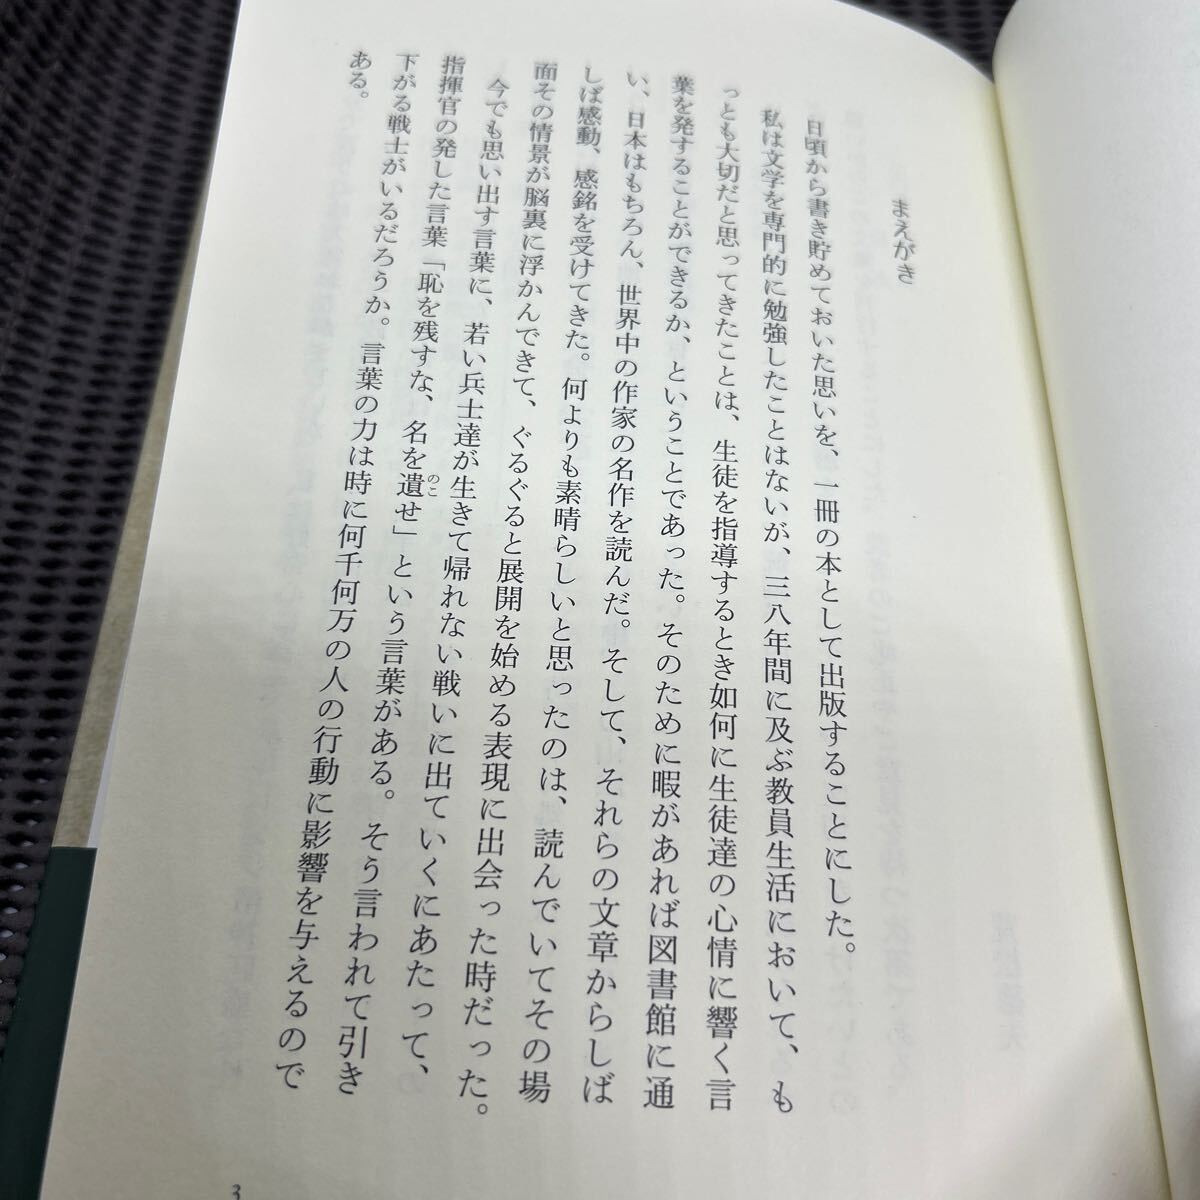 まえがき
日頃から書き貯めておいた思いを、一冊の本として出版することにした。
私は文学を専門的に勉強したことはないが、三八年間に及ぶ教員生活において、も
っとも大切だと思ってきたことは、生徒を指導するとき如何に生徒達の心情に響く言
葉を発することができるか、ということであった。そのために暇があれば図書館に通
い、日本はもちろん、世界中の作家の名作を読んだ。そして、それらの文章からしば
しば感動、感銘を受けてきた。何よりも素晴らしいと思ったのは、読んでいてその場
面その情景が脳裏に浮かんできて、ぐるぐると展開を始める表現に出会った時だった。
今でも思い出す言葉に、若い兵士達が生きて帰れない戦いに出ていくにあたって、
指揮官の発した言葉「恥を残すな、名を遺せ」という言葉がある。そう言われて引き
のこ
下がる戦士がいるだろうか。言葉の力は時に何千何万の人の行動に影響を与えるので
ある。
3